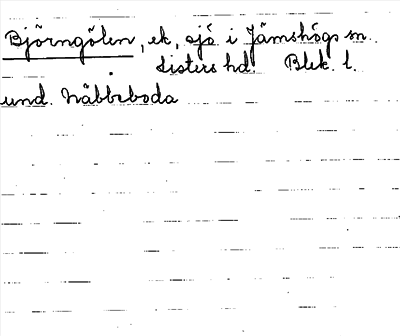 Björngölen, ek, sjö i Jämshögs sn.
Listers hd. Blek. l.
und. Näbbeboda